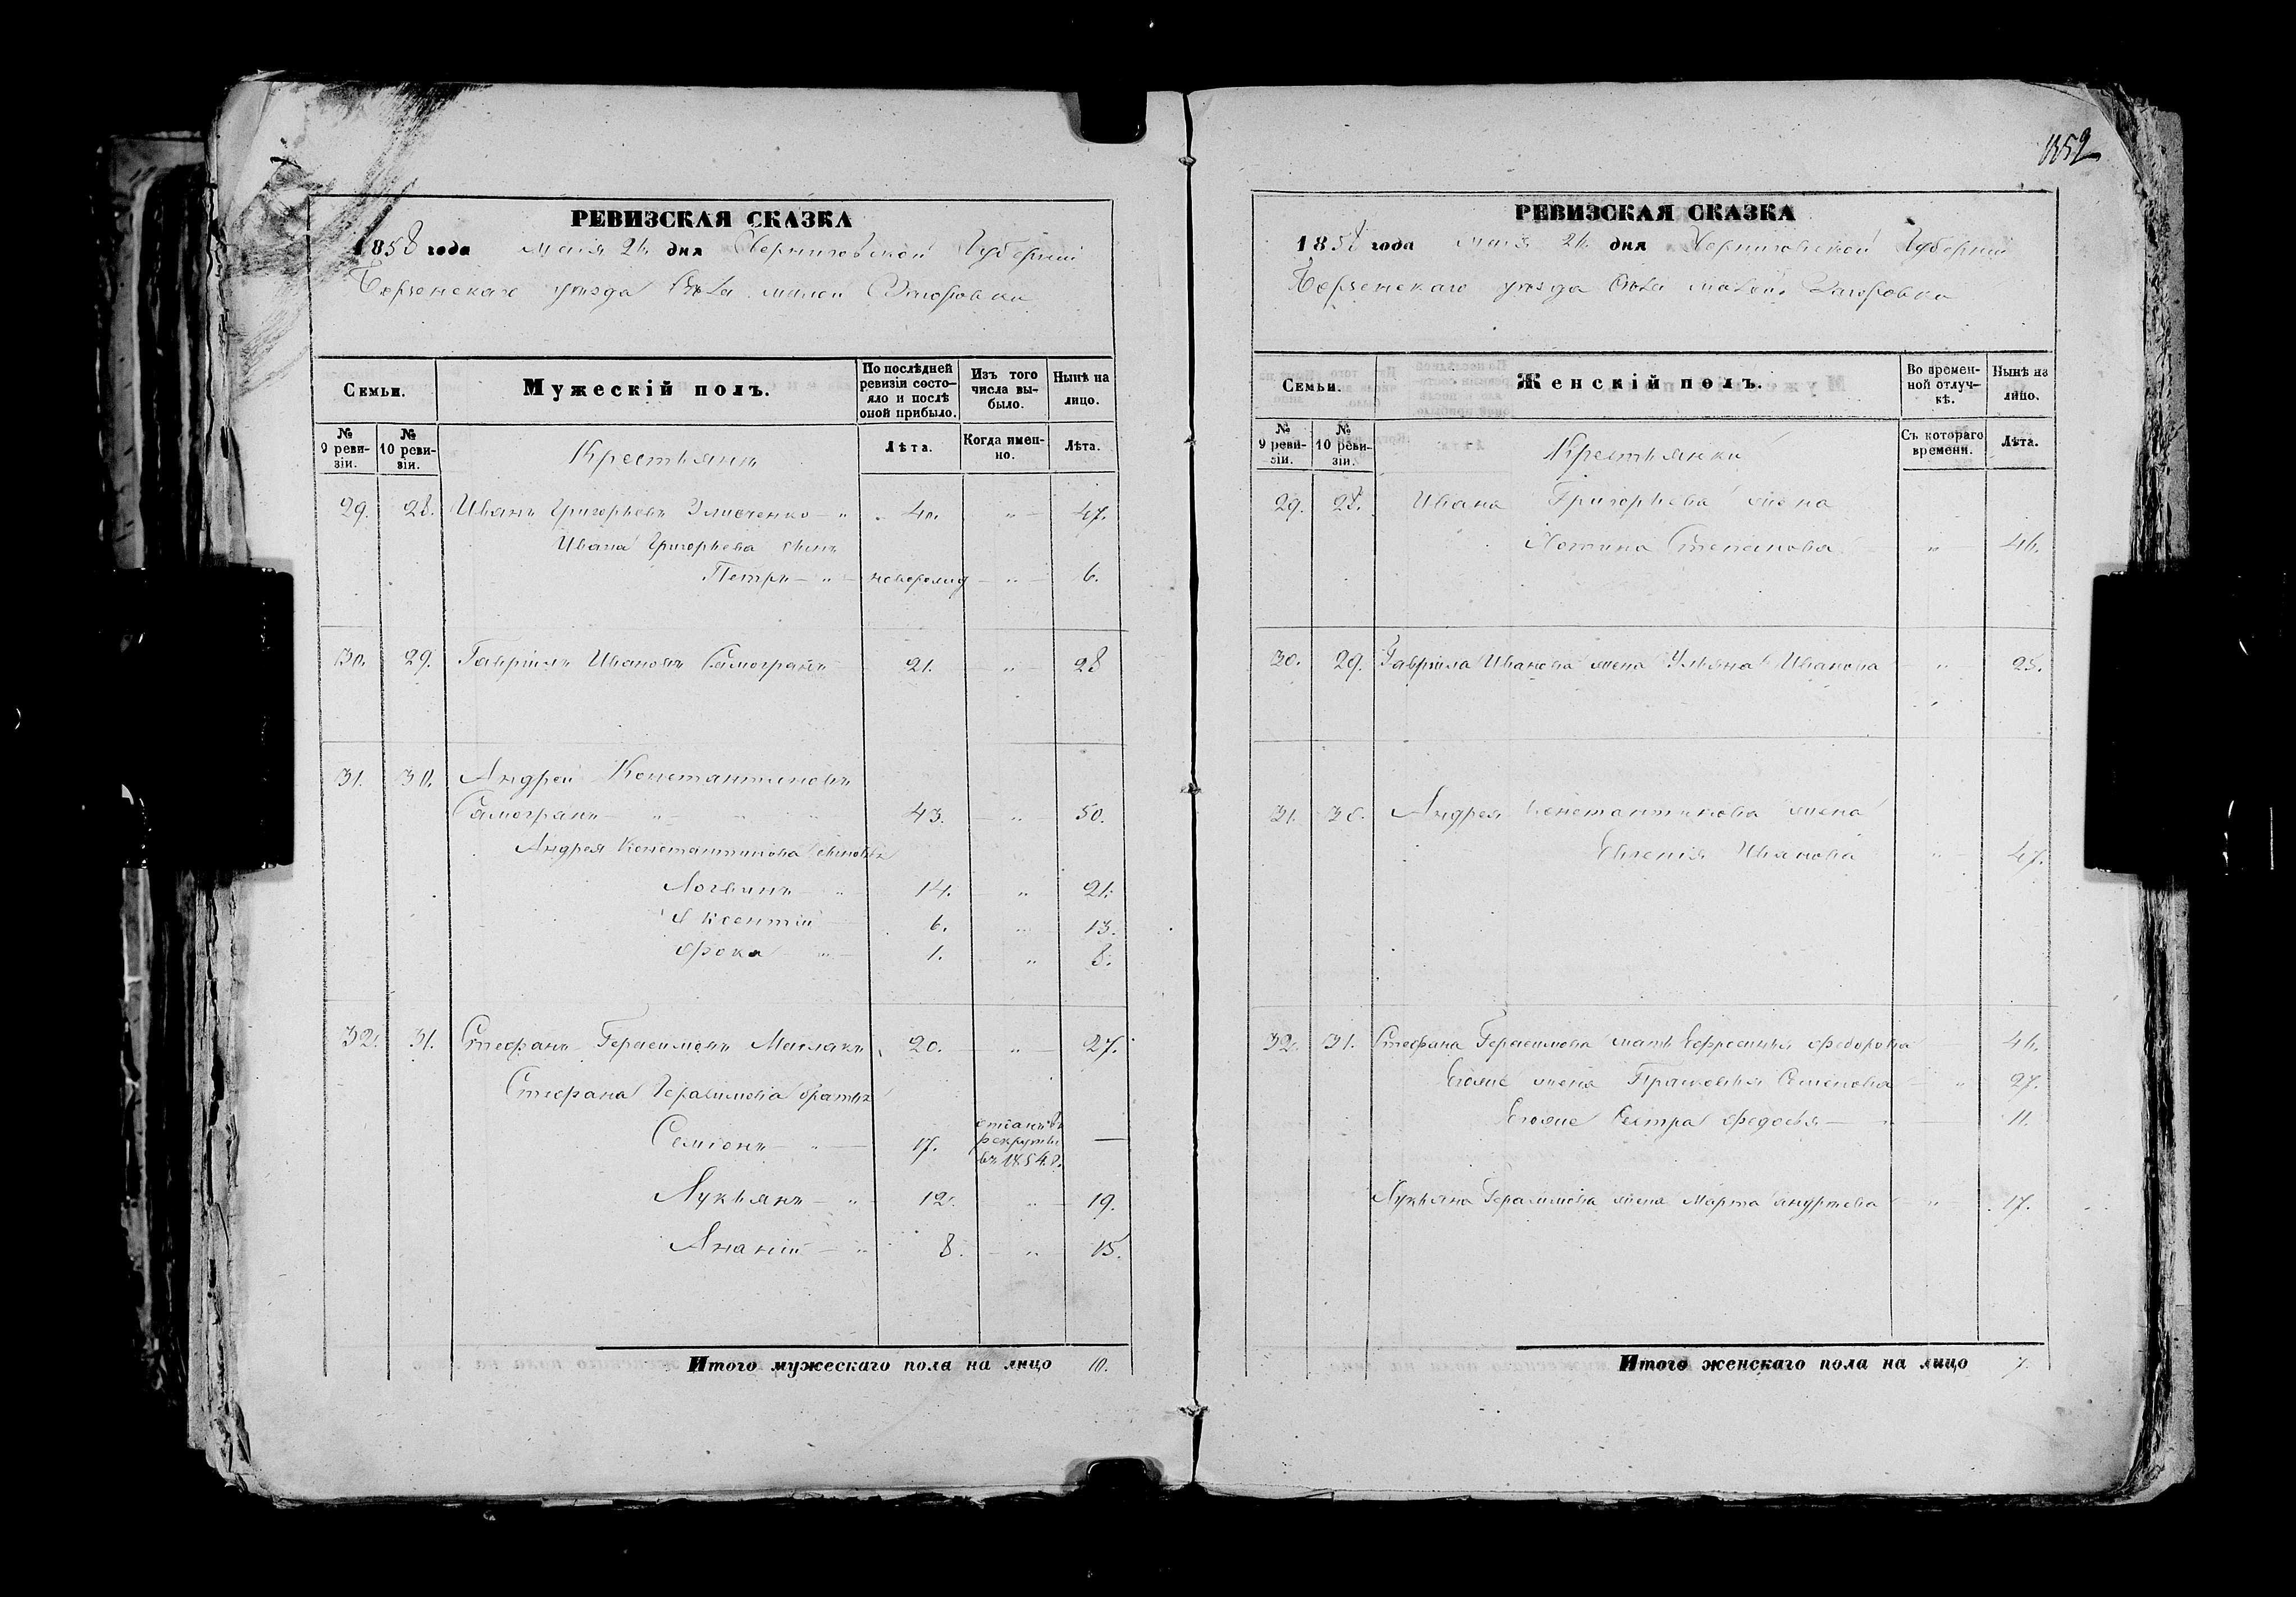 1352
РЕВИЗСКАЯ СКАЗКА
1858 года мая 21 дня Черниговской Губерніи
Борзенскаго уѣзда Села малой Загоровки
Семьи. Мужескій полъ. По послѣдней ревизіи состояло и послѣ оной прибыло. Изъ того числа выбыло. Нынѣ на лицо.
№ 9 ревизіи. № 10 ревизіи. Крестьяне Лѣта. Когда именно. Лѣта.
29. 28. Иванъ Григорьевъ — „ 40. „ 47.
Ивана Григорьева сынъ
Петръ — „ — новорожд — „ — 6.
30. 29. Гавріилъ Ивановъ Самогранъ 21. „ 28
31. 30. Андрей Константиновъ
Самогранъ — „ 43. — „ — 50.
Андрея Константинова сыновья
Логвинъ — „ 14. „ 21.
Аксентій 6. „ 13.
Фока „ 1. „ 8.
32. 31. Стефанъ Герасимовъ Маслакъ 20. „ 27.
Стефана Герасимова братья
Семіонъ — „ — 17. отданъ въ рекруты въ 1854 г. —
Лукьянъ — „ 12. „ 19.
Ананій — „ 8. — „ — 15.
Итого мужескаго пола на лицо 10.
РЕВИЗСКАЯ СКАЗКА
1858 года мая 21 дня Черниговской Губерніи
Борзенскаго уѣзда Села малой Загоровки
Семьи. Женскій полъ. Во временной отлучкѣ. Нынѣ на лицо.
№ 9 ревизіи. № 10 ревизіи. Крестьянки Съ котораго времени. Лѣта.
29. 28. Ивана Григорьева жена
Хотина Степанова „ 46.
30. 29. Гавріила Иванова жена Ульяна Иванова „ 25.
31. 30. Андрея Константинова жена
Евгенія Иванова „ 47.
32. 31. Стефана Герасимова мать Ефросинья Федорова 46.
Егоже жена Прасковья Семенова „ 27.
Егоже сестра Федосья — „ — 11.
Лукьяна Герасимова жена Марта — „ — 17.
Итого женскаго пола на лицо 7.